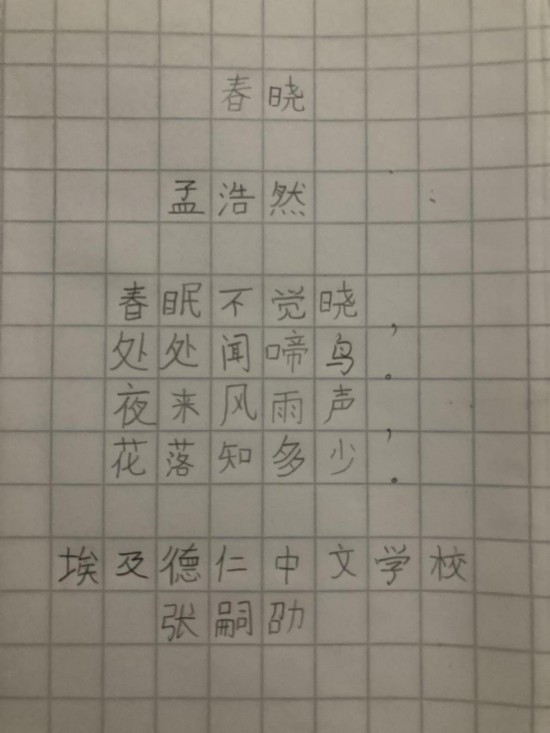 春晓
孟浩然
春眠不觉晓，
处处闻啼鸟。
夜来风雨声，
花落知多少。
埃及德仁中文学校
张嗣劭